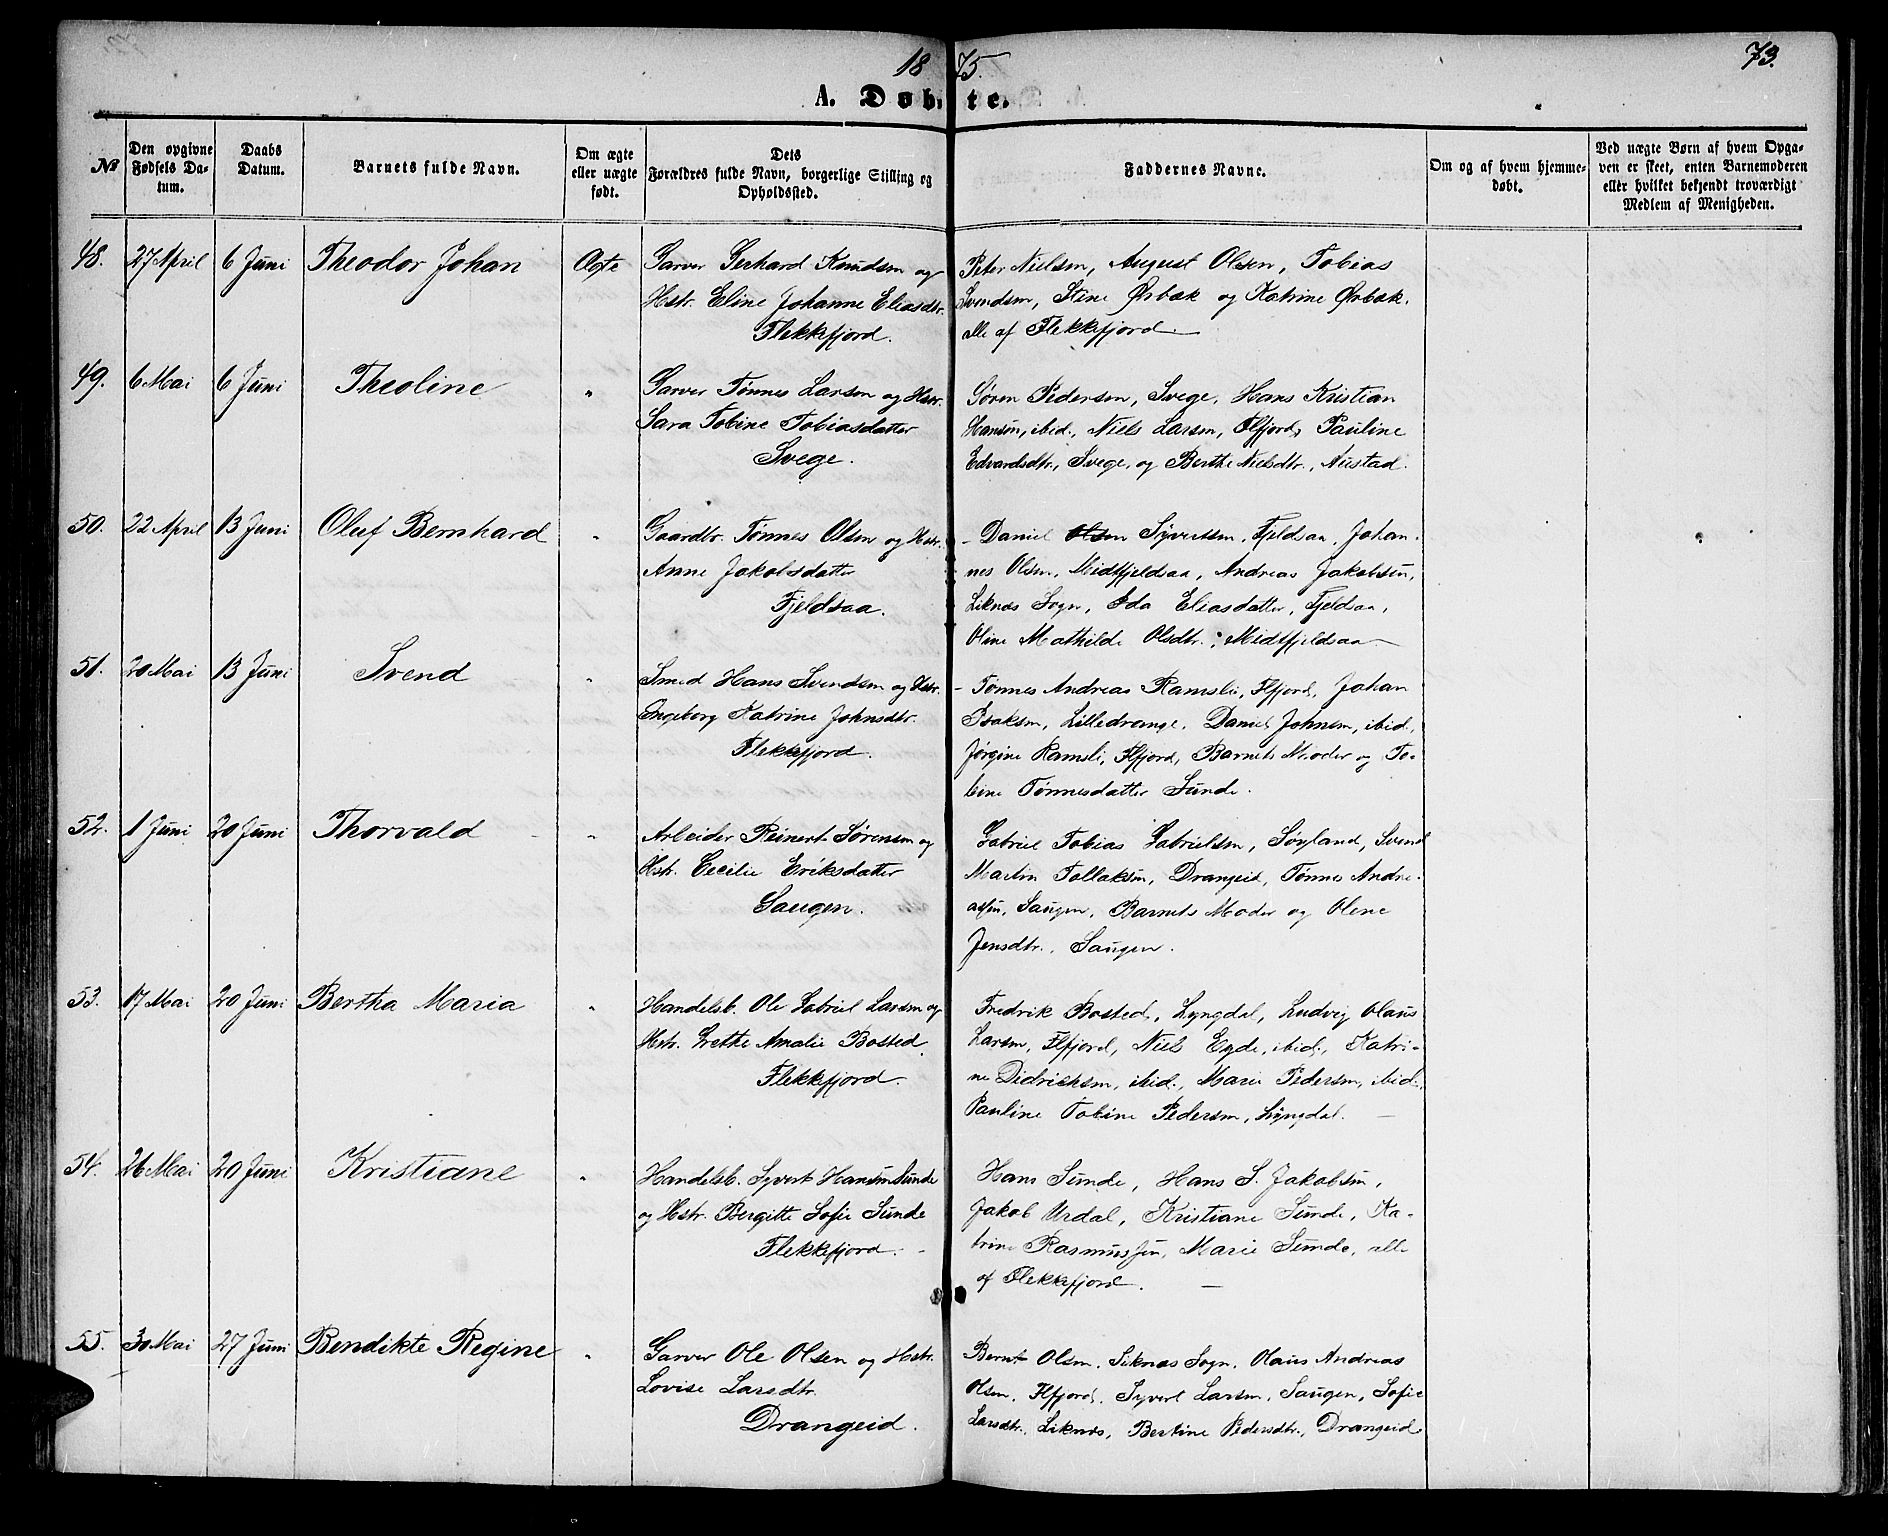 1875.
73.
A. Døbte.
No
Den opgivne Fødsels Datum.
Daabs Datum.
Barnets fulde Navn.
Om ægte eller uægte født.
Dets Forældres fulde Navn, borgerlige Stilling og Opholdssted.
Faddernes Navne.
Om og af hvem hjemmedøbt.
Ved uægte Børn af hvem Opgaven er skeet, enten Barnemoderen eller hvilket bekjendt troværdigt Medlem af Menigheden.
48. 27 April 6 Juni Theodor Johan Ægte
Garver Gerhard Knudsen og
Hstr. Eline Johanne Eliasdtr.
Flekkefjord.
Peter Nielsen, August Olsen, Tobias
Svendsen, Stine Ørbæk og Katrine Ørbæk.
alle af Flekkefjord.
49. 6 Mai 6 Juni Theoline "
Garver Tønnes Larsen og Hstr.
Sara Tobine Tobiasdatter
Svege.
Søren Pedersen, Svege, Hans Kristian
Hansen, ibid., Niels Larsen, Flfjord, Pauline
Edvardsdtr., Svege, og Berthe Nielsdtr., Austad.
50. 22 April 13 Juni Oluf Bernhard "
Gaardbr. Tønnes Olsen og Hstr.
Anne Jakobsdatter
Fjeldsaa.
- Daniel Olsen Syvertsen, Fjeldsaa, Johan-
nes Olsen, Midtfjeldsaa, Andreas Jakobsen,
Liknæs Sogn, Ida Eliasdatter, Fjeldsaa,
Oline Mathilde Olsdtr., Midtfjeldsaa
51. 20 Mai 13 Juni Svend "
Smed Hans Svendsen og Hstr.
Ingeborg Katrine Johnsdtr.
Flekkefjord.
- Tønnes Andreas Ramsli, Flfjord, Johan
Isaksen, Lilledrange, Daniel Johnsen, ibid.,
Jørgine Ramsli, Flfjord, Barnets Moder og To-
bine Tønnesdatter Sunde.
52. 1 Juni 20 Juni Thorvald "
Arbeider Reinert Sørensen og
Hstr. Cecilie Eriksdatter
Saugen.
Gabriel Tobias Gabrielsen, Søyland, Svend
Martin Tollaksen, Drangeid, Tønnes Andre-
assen, Saugen, Barnets Moder og Olene
Jensdtr., Saugen.
53. 17 Mai 20 Juni Bertha Maria "
Handelsb. Ole Gabriel Larsen og
Hstr. Grethe Amalie Bosted
Flekkefjord.
Fredrik Bosted, Lyngdal, Ludvig Olaus
Larsen, Flfjord, Niels Eyde, ibid., Katri-
ne Didricksen, ibid., Marie Pedersen, ibid.
Pauline Tobine Pedersen, Lyngdal.
54. 26 Mai 20 Juni Kristiane "
Handelsb. Syvert Hansen Sunde
og Hstr. Bergitte Sofie Sunde
Flekkefjord.
Hans Sunde, Hans S. Jakobsen,
Jakob Urdal, Kristiane Sunde, Ka-
trine Rasmussen, Marie Sunde, alle
af Flekkefjord.
55. 30 Mai 27 Juni Bendikte Regine "
Garver Ole Olsen og Hstr.
Lovise Larsdtr.
Drangeid.
Bernt Olsen, Liknæs Sogn, Olaus Andreas
Olsen, Flfjord, Syvert Larsen, Saugen, Sofie
Larsdtr., Liknæs, Bertine Pedersdtr., Drangeid